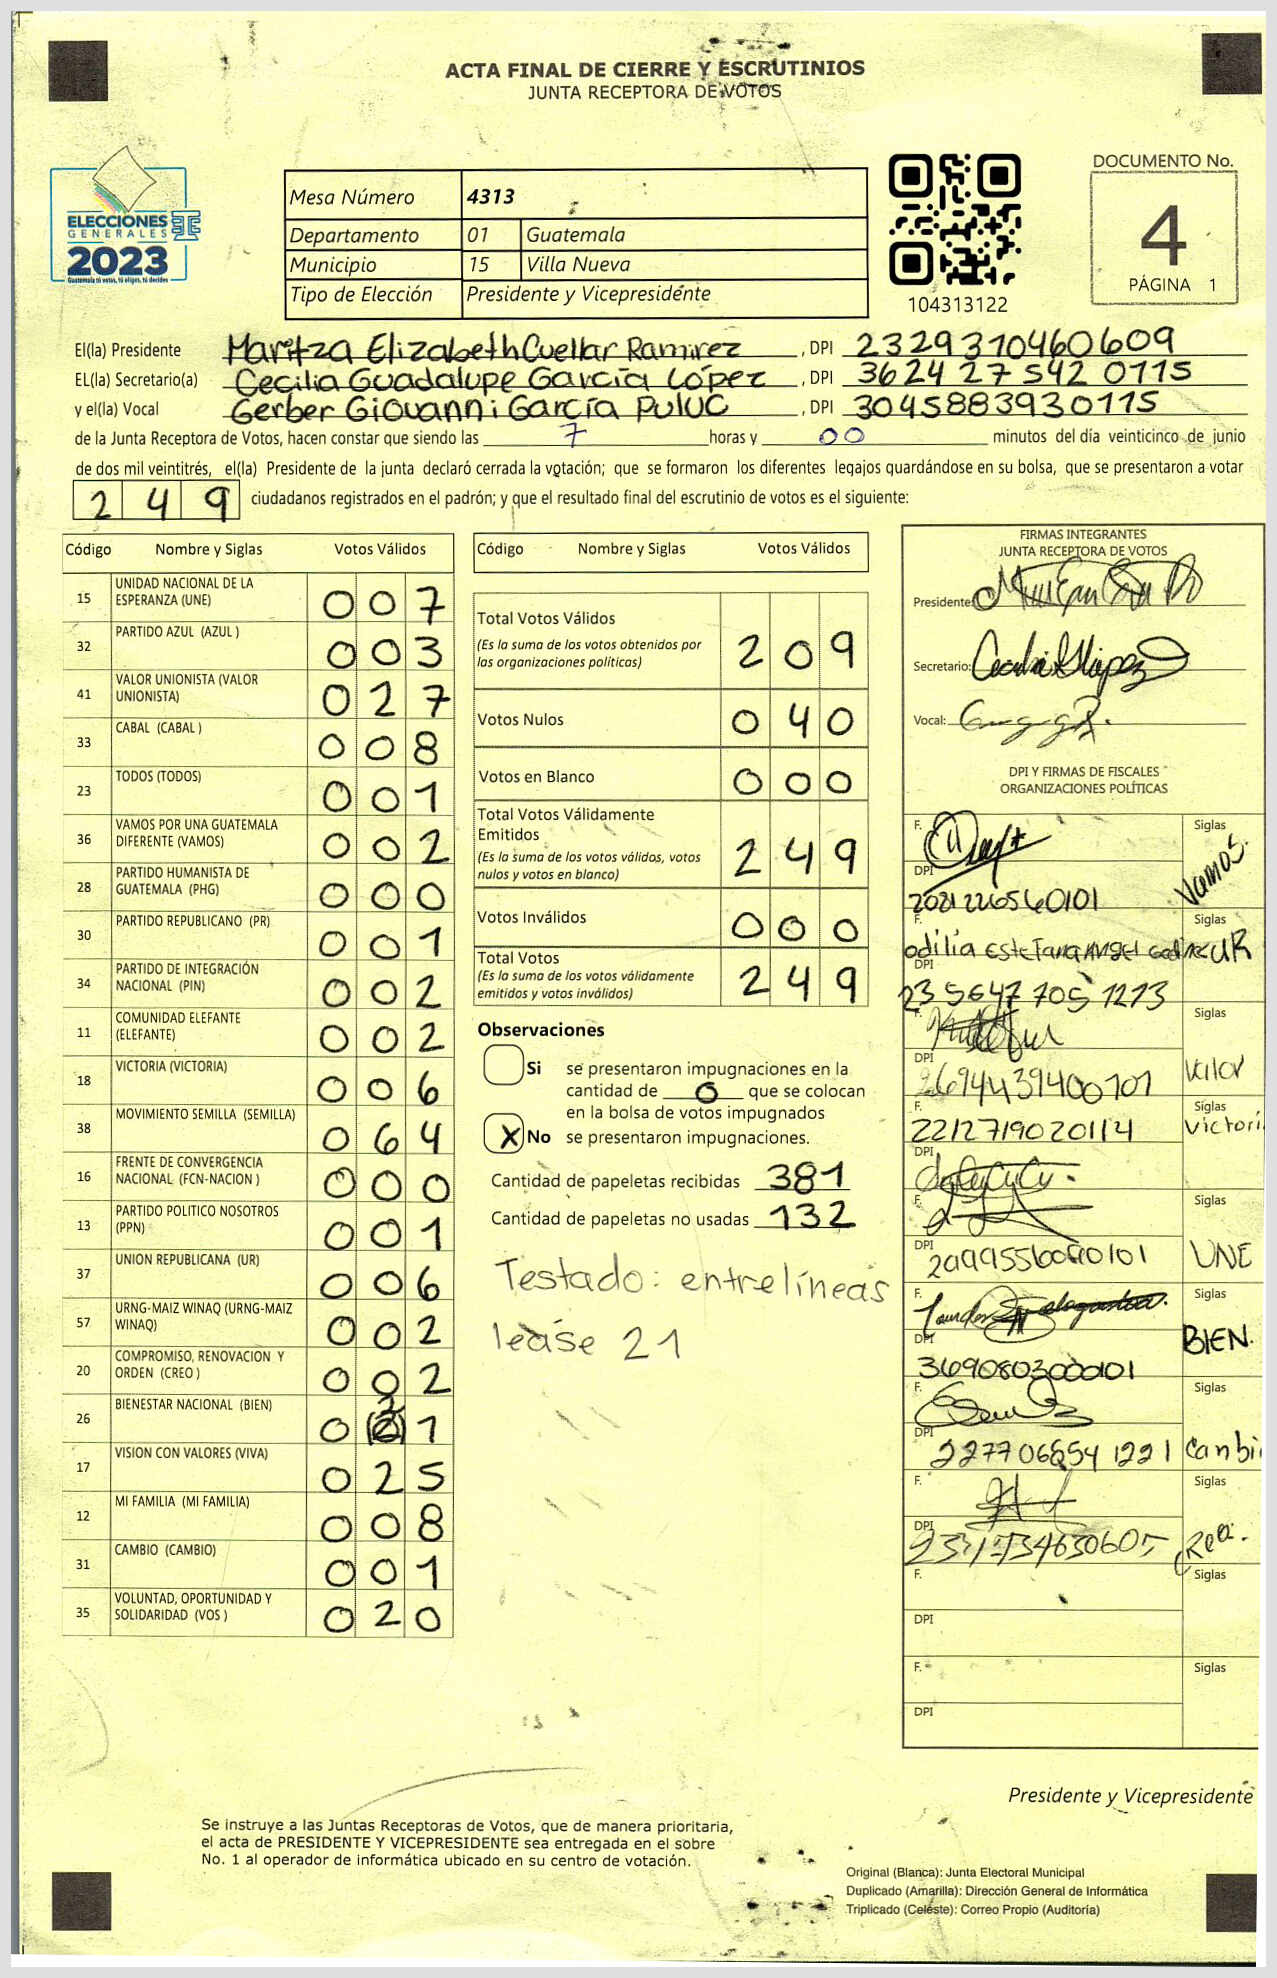 ACTA FINAL DE CIERRE Y ESCRUTINIOS
JUNTA RECEPTORA DE VOTOS
ELECCIONES
GENERALES
2023
Guatemala tú votas, tú eliges, tú decides
Mesa Número 4313
Departamento 01 Guatemala
Municipio 15 Villa Nueva
Tipo de Elección Presidente y Vicepresidente
104313122
DOCUMENTO No.
4
PÁGINA 1
El(la) Presidente Maritza Elizabeth Cuellar Ramirez, DPI 2329310460609
EL(la) Secretario(a) Cecilia Guadalupe García López, DPI 3624 27542 0115
y el(la) Vocal Gerber Giovanni García Puluc, DPI 3045883930115
de la Junta Receptora de Votos, hacen constar que siendo las 7 horas y 00 minutos del día veinticinco de junio
de dos mil veintitrés, el(la) Presidente de la junta declaró cerrada la votación; que se formaron los diferentes legajos guardándose en su bolsa, que se presentaron a votar
249 ciudadanos registrados en el padrón; y que el resultado final del escrutinio de votos es el siguiente:
Código Nombre y Siglas Votos Válidos
15 UNIDAD NACIONAL DE LA
ESPERANZA (UNE) 007
32 PARTIDO AZUL (AZUL ) 003
41 VALOR UNIONISTA (VALOR
UNIONISTA) 027
33 CABAL (CABAL ) 008
23 TODOS (TODOS) 001
36 VAMOS POR UNA GUATEMALA
DIFERENTE (VAMOS) 002
28 PARTIDO HUMANISTA DE
GUATEMALA (PHG) 000
30 PARTIDO REPUBLICANO (PR) 001
34 PARTIDO DE INTEGRACIÓN
NACIONAL (PIN) 002
11 COMUNIDAD ELEFANTE
(ELEFANTE) 002
18 VICTORIA (VICTORIA) 006
38 MOVIMIENTO SEMILLA (SEMILLA) 064
16 FRENTE DE CONVERGENCIA
NACIONAL (FCN-NACION ) 000
13 PARTIDO POLITICO NOSOTROS
(PPN) 001
37 UNION REPUBLICANA (UR) 006
57 URNG-MAIZ WINAQ (URNG-MAIZ
WINAQ) 002
20 COMPROMISO, RENOVACION Y
ORDEN (CREO ) 002
26 BIENESTAR NACIONAL (BIEN) 021
17 VISION CON VALORES (VIVA) 025
12 MI FAMILIA (MI FAMILIA) 008
31 CAMBIO (CAMBIO) 001
35 VOLUNTAD, OPORTUNIDAD Y
SOLIDARIDAD (VOS ) 020
Código Nombre y Siglas Votos Válidos
Total Votos Válidos
(Es la suma de los votos obtenidos por
las organizaciones políticas) 209
Votos Nulos 040
Votos en Blanco 000
Total Votos Válidamente
Emitidos
(Es la suma de los votos válidos, votos
nulos y votos en blanco) 249
Votos Inválidos 000
Total Votos
(Es la suma de los votos válidamente
emitidos y votos inválidos) 249
Observaciones
Si se presentaron impugnaciones en la
cantidad de 0 que se colocan
en la bolsa de votos impugnados
X No se presentaron impugnaciones.
Cantidad de papeletas recibidas 381
Cantidad de papeletas no usadas 132
Testado: entrelíneas
lease 21
FIRMAS INTEGRANTES
JUNTA RECEPTORA DE VOTOS
Presidente:
Secretario:
Vocal:
DPI Y FIRMAS DE FISCALES
ORGANIZACIONES POLÍTICAS
F. Siglas
DPI Vamos
F. Siglas
UR
DPI
23 5647 705 1213
F. Siglas
DPI Valor
2694439400101
F. Siglas
2212719020114 Victori
DPI
F. Siglas
DPI UNE
F. Siglas
DPI BIEN.
3690803000101
F. Siglas
DPI Canbi
F. Siglas
DPI
F. Siglas
DPI
F. Siglas
DPI
Presidente y Vicepresidente
Se instruye a las Juntas Receptoras de Votos, que de manera prioritaria,
el acta de PRESIDENTE Y VICEPRESIDENTE sea entregada en el sobre
No. 1 al operador de informática ubicado en su centro de votación.
Original (Blanca): Junta Electoral Municipal
Duplicado (Amarilla): Dirección General de Informática
Triplicado (Celeste): Correo Propio (Auditoría)